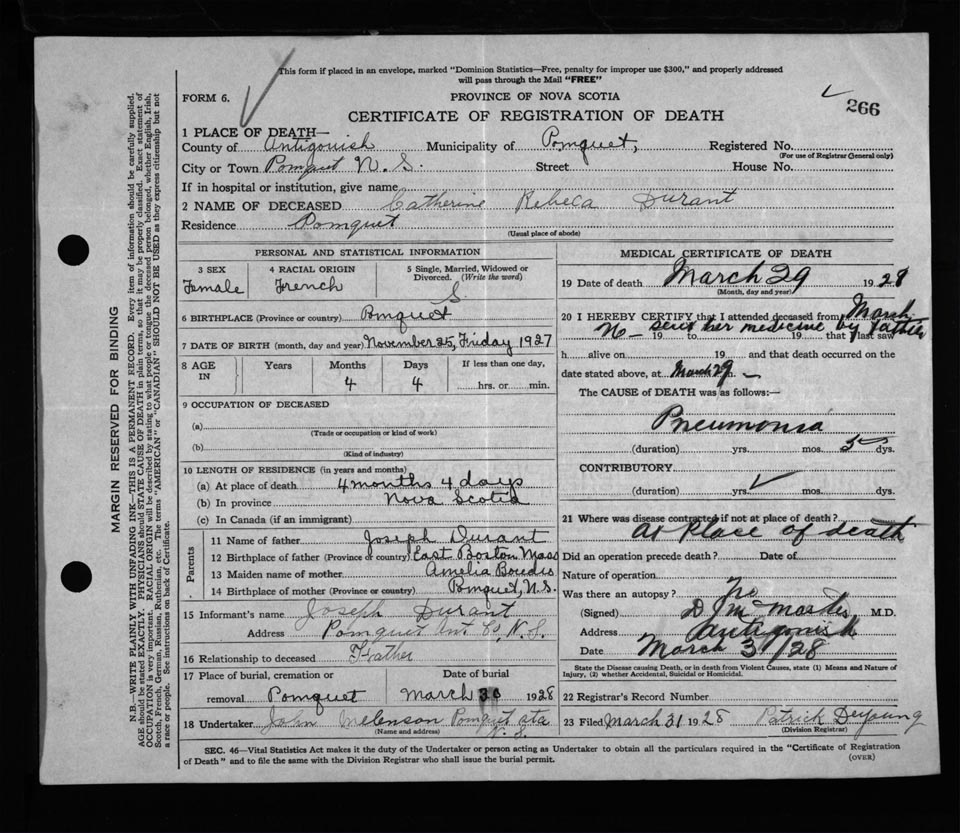 This form if placed in an envelope, marked "Dominion Statistics—Free, penalty for improper use $300," and properly addressed
will pass through the Mail "FREE"
FORM 6.
PROVINCE OF NOVA SCOTIA
266
CERTIFICATE OF REGISTRATION OF DEATH
1 PLACE OF DEATH—
County of Antigonish Municipality of Pomquet, Registered No.
(For use of Registrar General only)
City or Town Pomquet N. S. Street House No.
If in hospital or institution, give name
2 NAME OF DECEASED Catherine Rebeca Durant
Residence Pomquet
(Usual place of abode)
PERSONAL AND STATISTICAL INFORMATION
3 SEX 4 RACIAL ORIGIN 5 Single, Married, Widowed or
Divorced. (Write the word)
Female French S
6 BIRTHPLACE (Province or country) Pomquet
7 DATE OF BIRTH (month, day and year) November 25, Friday 1927
8 AGE IN Years Months Days If less than one day,
4 4 hrs. or min.
9 OCCUPATION OF DECEASED
(a)
(Trade or occupation or kind of work)
(b)
(Kind of industry)
10 LENGTH OF RESIDENCE (in years and months)
(a) At place of death 4 months 4 days
(b) In province Nova Scotia
(c) In Canada (if an immigrant)
Parents
11 Name of father Joseph Durant
12 Birthplace of father (Province or country) East Boston Mass
13 Maiden name of mother Amelia
14 Birthplace of mother (Province or country) Pomquet, N.S.
15 Informant's name Joseph Durant
Address Pomquet Ant Co, N.S.
16 Relationship to deceased Father
17 Place of burial, cremation or Date of burial
removal Pomquet March 30 1928
18 Undertaker John Melenson Pomquet sta
N. S.
(Name and address)
MEDICAL CERTIFICATE OF DEATH
19 Date of death March 29 1928
(Month, day and year)
20 I HEREBY CERTIFY that I attended deceased from March
No – sent her medicine by father
19 to 19 that I last saw
h alive on 19 and that death occurred on the
date stated above, at March 29 m. –
The CAUSE OF DEATH was as follows:—
Pneumonia
(duration) yrs. mos. 5 dys.
CONTRIBUTORY
(duration) yrs. mos. dys.
21 Where was disease contracted if not at place of death?
At Place of death
Did an operation precede death? Date of
Nature of operation
Was there an autopsy? No
(Signed) M.D.
Address Antigonish
Date March 31/28
State the Disease causing Death, or in death from Violent Causes, state (1) Means and Nature of
Injury, (2) whether Accidental, Suicidal or Homicidal.
22 Registrar's Record Number
23 Filed March 31 1928 Patrick Deyoung
(Division Registrar)
SEC. 46—Vital Statistics Act makes it the duty of the Undertaker or person acting as Undertaker to obtain all the particulars required in the "Certificate of Registration
of Death" and to file the same with the Division Registrar who shall issue the burial permit.
(OVER)
MARGIN RESERVED FOR BINDING
N.B.—WRITE PLAINLY, WITH UNFADING INK—THIS IS A PERMANENT RECORD. Every item of information should be carefully supplied.
AGE should be stated EXACTLY. PHYSICIANS should STATE CAUSE OF DEATH in plain terms, so that it may be properly classified. Exact statement of
OCCUPATION is very important. RACIAL ORIGIN will be described by stating to what people or tongue the deceased person belonged, whether English, Irish,
Scotch, French, German, Russian, Ruthenian, etc. The terms "AMERICAN" or "CANADIAN" SHOULD NOT BE USED as they express citizenship but not
a race or people. See instructions on back of Certificate.